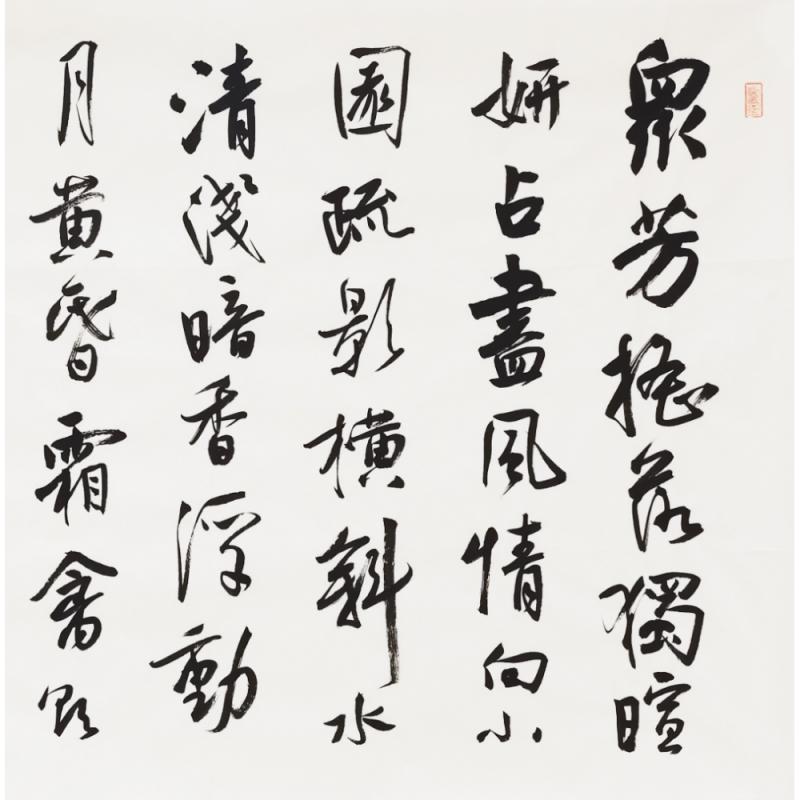 眾芳搖落獨暄
妍占盡風情向小
園疏影橫斜水
清淺暗香浮動
月黃昏霜禽欲